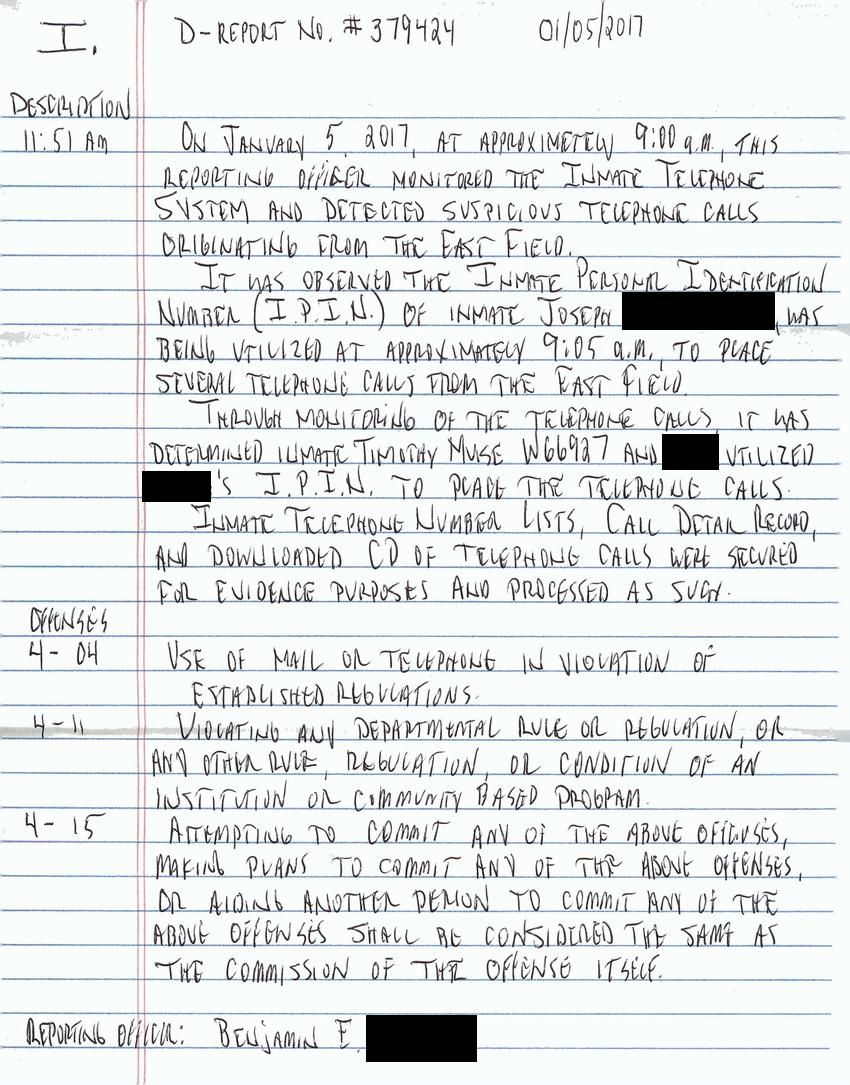 I. D-REPORT NO. #379424 01/05/2017
DESCRIPTION
11:51 AM ON JANUARY 5, 2017, AT APPROXIMETELY 9:00 a.m., THIS
REPORTING OFFICER MONITORED THE INMATE TELEPHONE
SYSTEM AND DETECTED SUSPICIOUS TELEPHONE CALLS
ORIGINATING FROM THE EAST FIELD.
IT WAS OBSERVED THE INMATE PERSONAL IDENTIFICATION
NUMBER (I.P.I.N.) OF INMATE JOSEPH , WAS
BEING UTILIZED AT APPROXIMATELY 9:05 a.m., TO PLACE
SEVERAL TELEPHONE CALLS FROM THE EAST FIELD.
THROUGH MONITORING OF THE TELEPHONE CALLS, IT WAS
DETERMINED INMATE TIMOTHY MUISE W66927 AND UTILIZED
'S I.P.I.N. TO PLACE THE TELEPHONE CALLS.
INMATE TELEPHONE NUMBER LISTS, CALL DETAIL RECORD,
AND DOWNLOADED CD OF TELEPHONE CALLS WERE SECURED
FOR EVIDENCE PURPOSES AND PROCESSED AS SUCH.
OFFENSES
4-04 USE OF MAIL OR TELEPHONE IN VIOLATION OF
ESTABLISHED REGULATIONS.
4-11 VIOLATING ANY DEPARTMENTAL RULE OR REGULATION, OR
ANY OTHER RULE, REGULATION, OR CONDITION OF AN
INSTITUTION OR COMMUNITY BASED PROGRAM.
4-15 ATTEMPTING TO COMMIT ANY OF THE ABOVE OFFENSES,
MAKING PLANS TO COMMIT ANY OF THE ABOVE OFFENSES,
OR AIDING ANOTHER PERSON TO COMMIT ANY OF THE
ABOVE OFFENSES SHALL BE CONSIDERED THE SAME AS
THE COMMISSION OF THE OFFENSE ITSELF.
REPORTING OFFICER: BENJAMIN E.